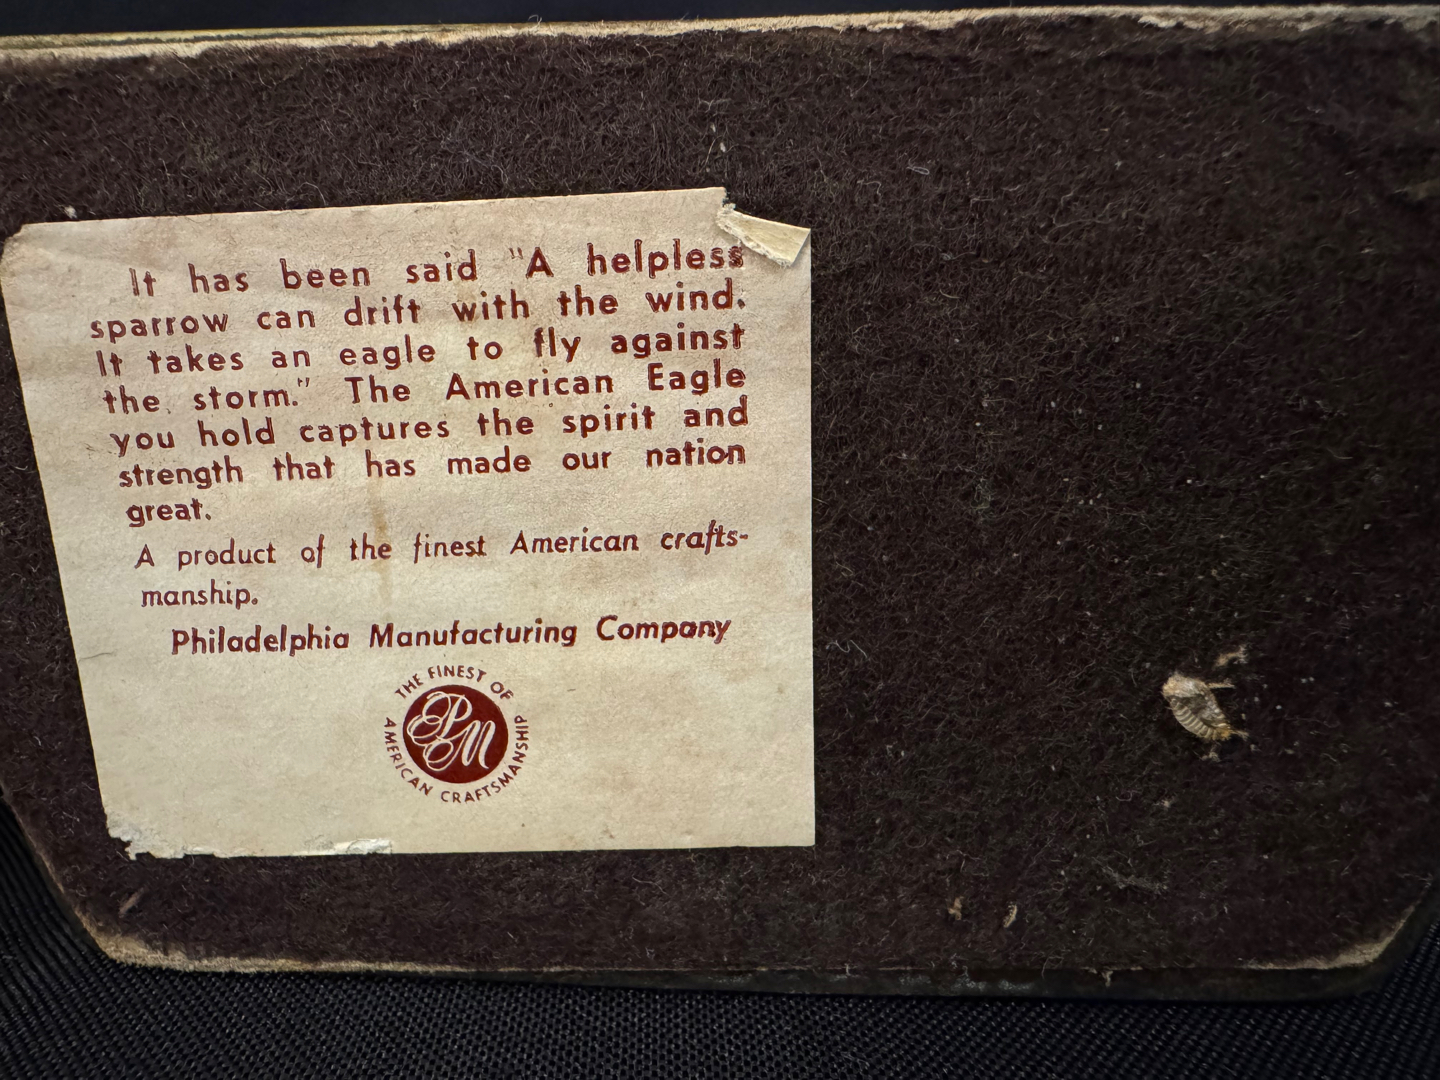 It has been said "A helpless
sparrow can drift with the wind.
It takes an eagle to fly against
the storm." The American Eagle
you hold captures the spirit and
strength that has made our nation
great.
A product of the finest American crafts-
manship.
Philadelphia Manufacturing Company
THE FINEST OF
AMERICAN CRAFTSMANSHIP
PM